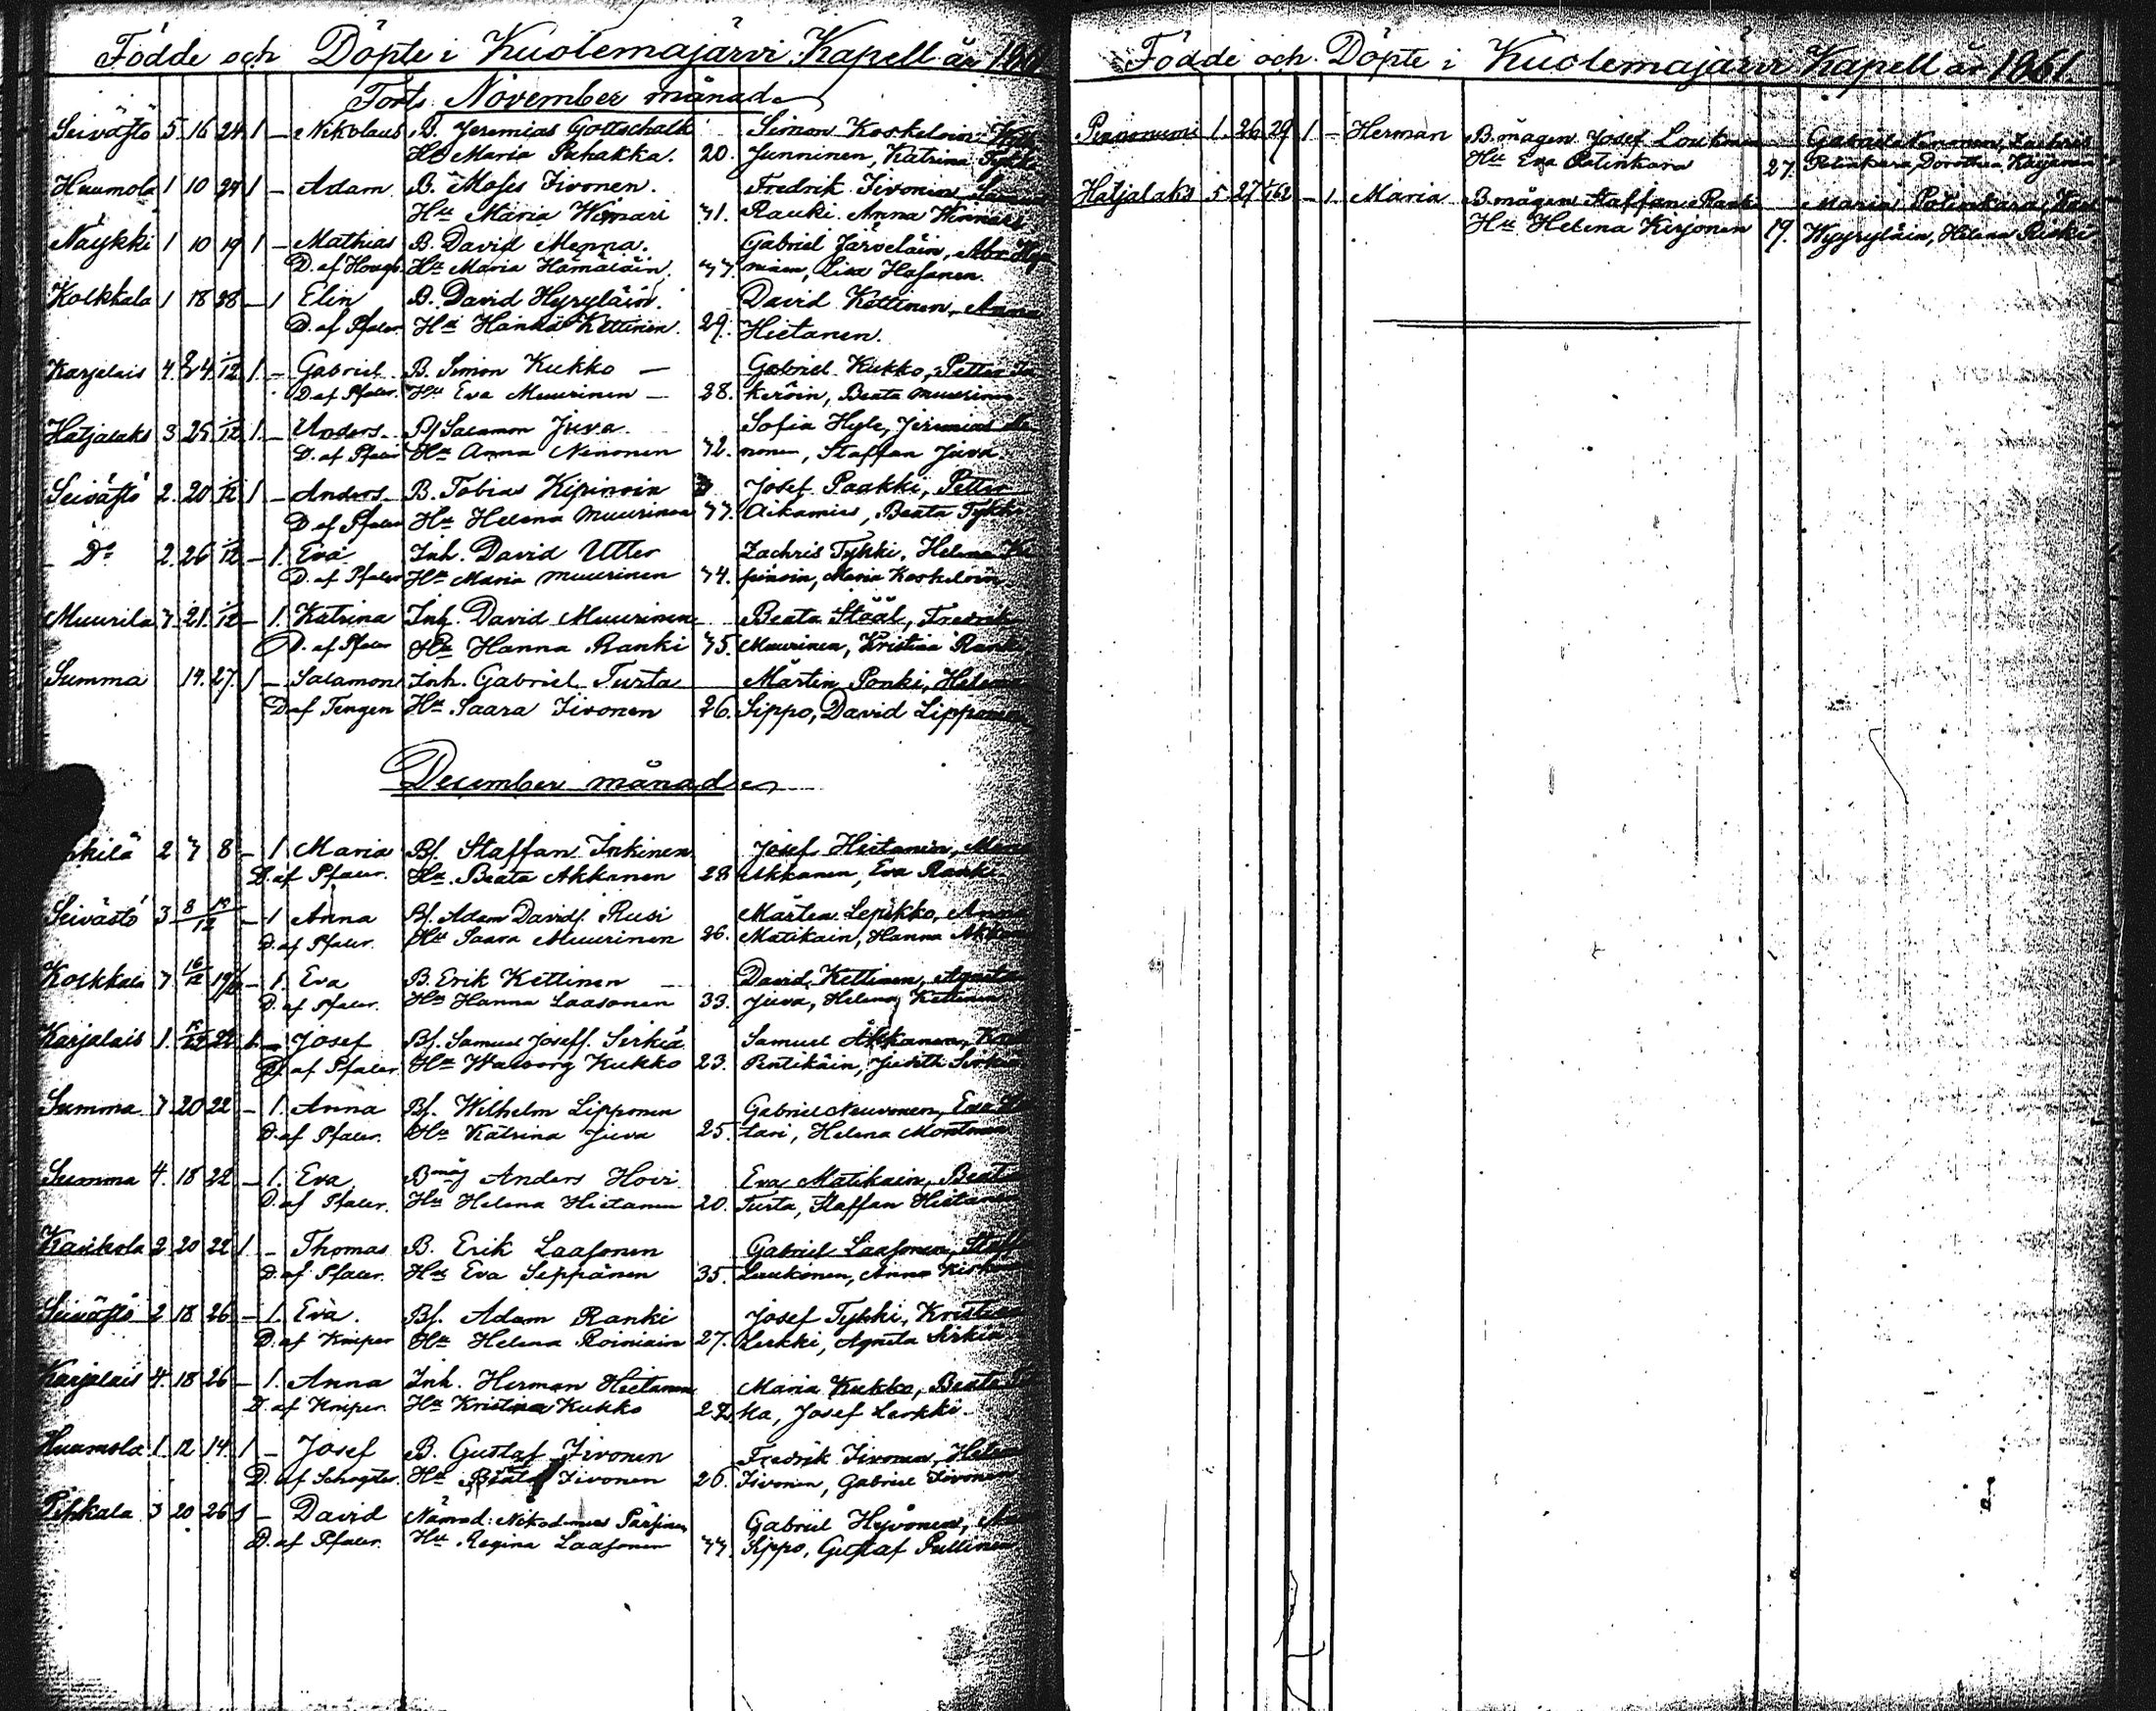 Födde och Döpte i Kuolemajärvi Kapell år
Forts November månad
Seivästö 5 16 24 1 - Nikolaus B. Jeremias Gottschalk Simon Koskeloin
Hu Maria Pahakka. 20. Junninen, Katrina
Huumola 1 10 24 1 - Adam B. Moses Iivonen. Fredrik Iivonen
Hu Maria Winari 31. Rauki. Anna
Näykki 1 10 19 1 - Mathias B. David Menna. Gabriel Järveläin,
D. af Hougb. Hu Maria Hämäläin, 37. ninen, Lisa Hasanen.
Kolkkala 1 18 28 - 1 Elin B. David Hyryläin. David Kettinen, Anna
D. af Pfaler. Hu Hanna Kettinen. 29. Hietanen.
Karjalais 4. 24. 1/12 1. - Gabriel B. Simon Kukko - Gabriel Kukko, Petter
D. af Pfaler. Hu Eva Muurinen - 28. keröin, Beata Muurinen
Hatjalaks 3 25 1/12 1. - Anders Bf Salamon Juva. Sofia Hyle, Jeremias
D. af Pfaler Hu Anna Ninonen 32. nonen, Staffan Juva
Seivästö 2. 20 1/12 1 - Anders B. Tobias Kipinoin Josef Paakki, Petter
D af Pfaler Hu Helena Muurinen 37. Aikamies, Beata Tykki
Do 2. 26 1/12 - 1. Eva Inh. David Utter Zachris Tykki, Helena
D. af Pfaler Hu Maria Muurinen 34. pinoin, Maria Koskeloin
Muurila 7 21. 1/12 - 1. Katrina Inh. David Muurinen Beata Ståål, Fredrik
D. af Pfaler Hu Hanna Ranki 35. Muurinen, Kristina Ranki
Summa 14. 27. 1 - Salamon Inh. Gabriel Turta Mårten Ponki, Helena
D af Tengen Hu Saara Iivonen 26. Sippo, David Lipponen
December månad
2 7 8 - 1. Maria Bf. Staffan Inkinen Josef Hietanen,
D. af Pfaler. Hu. Beata Akkanen 28 Akkanen, Eva Ranki
Seivästö 3 8/12 - 1 Anna Bf. Adam Davidf. Rusi Mårten Lepikko, Anna
D. af Pfaler. Hu Saara Muurinen 26. Matikain, Hanna
Kolkkala 7 16/12 19/12 - 1. Eva B. Erik Kettinen - David Kettinen, Agneta
D. af Pfaler. Hu Hanna Laasonen 33. Juva, Helena Kettinen
Karjalais 1. 22 1. - Josef Bf. Samuel Joseff. Sirkiä Samuel Akkanen,
D. af Pfaler. Hu Walborg Kukko 23. Pentikäin, Judith Sirkiä
Summa 7 20 22 - 1. Anna Bf. Wilhelm Lipponen Gabriel Neuvonen, Eva
D. af Pfaler. Hu Katrina Juva 25. tari, Helena Montonen
Summa 4. 18 22 - 1. Eva Bmåg Anders Hovi Eva Matikain, Beata
D. af Pfaler. Hu Helena Hietanen 20. Turta, Staffan Hietanen
2 20 22 1 - Thomas B. Erik Laasonen Gabriel Laasonen,
D. af Pfaler. Hu Eva Seppänen 35. Luukonen, Anna
Seivästö 2 18 26 - 1. Eva. Bf. Adam Ranki Josef Tykki, Kristina
D. af Kniper Hu Helena Roiniain 27. Lerkki, Agneta Sirkiä
Karjalais 4. 18 26 - 1. Anna Inh. Herman Hietanen Maria Kukko, Beata
D. af Kniper. Hu Kristina Kukko ka, Josef Lerkki.
Huumola 1 12 14. 1 - Josef B. Gustaf Iivonen Fredrik Iivonen, Helena
D. af Hu Beata Iivonen 26. Iivonen, Gabriel Iivonen
Pihkala 3 20 26 1 - David Nämnd: Nikodemus Pärsinen Gabriel Hyvönen,
D. af Pfaler. Hu Regina Laasonen 37. Sippo, Gustaf Pullinen
Födde och Döpte i Kuolemajärvi Kapell år 1861.
1. 26 29 1 - Herman B. mågen Josef Loukman Gabriel
Hu Eva Patinkara 27. Patinkara, Dorothea
Hatjalaks 5. 27 - 1. Maria B. mågen Staffan Ranki Maria Patinkara,
Hu Helena Kirjonen 19. Wyyryläin, Helena